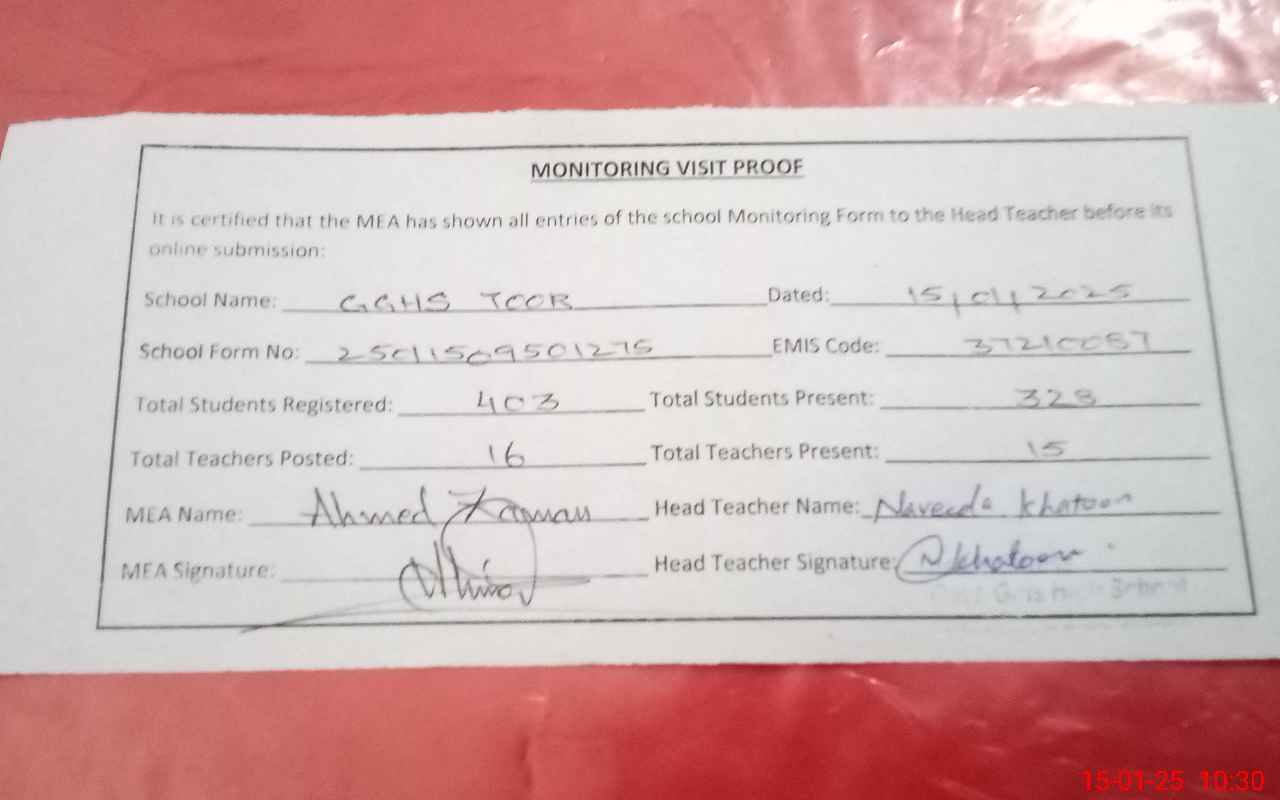 MONITORING VISIT PROOF
It is certified that the MEA has shown all entries of the school Monitoring Form to the Head Teacher before its
online submission:
School Name: GGHS TOOR Dated: 15/01/2025
School Form No: 25011569501275 EMIS Code: 37210057
Total Students Registered: 403 Total Students Present: 328
Total Teachers Posted: 16 Total Teachers Present: 15
MEA Name: Ahmed Zaman Head Teacher Name: Naveeda Khatoon
MEA Signature: Head Teacher Signature: N khatoon
Girls High School
15-01-25 10:30